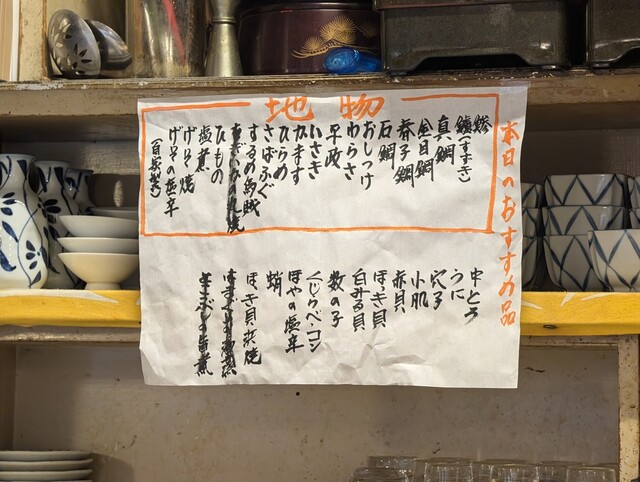 本日のおすすめ品
地物
鯵
鱸(すずき)
真鯛
金目鯛
春子鯛
石鯛
おしつけ
わらさ
平政
いさき
かます
ひらめ
さばふぐ
するめ烏賊
ひもの
塩煮
げそ焼
げその塩辛
(自家製)
中とろ
うに
穴子
小肌
赤貝
ほっき貝
白みる貝
数の子
くじらベーコン
ほやの塩辛
蛸
ほっき貝鉄焼